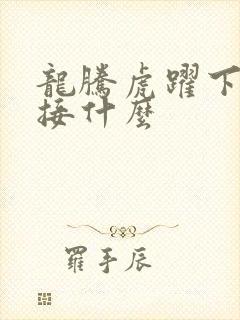 龍騰虎躍下
接什麼
羅手辰